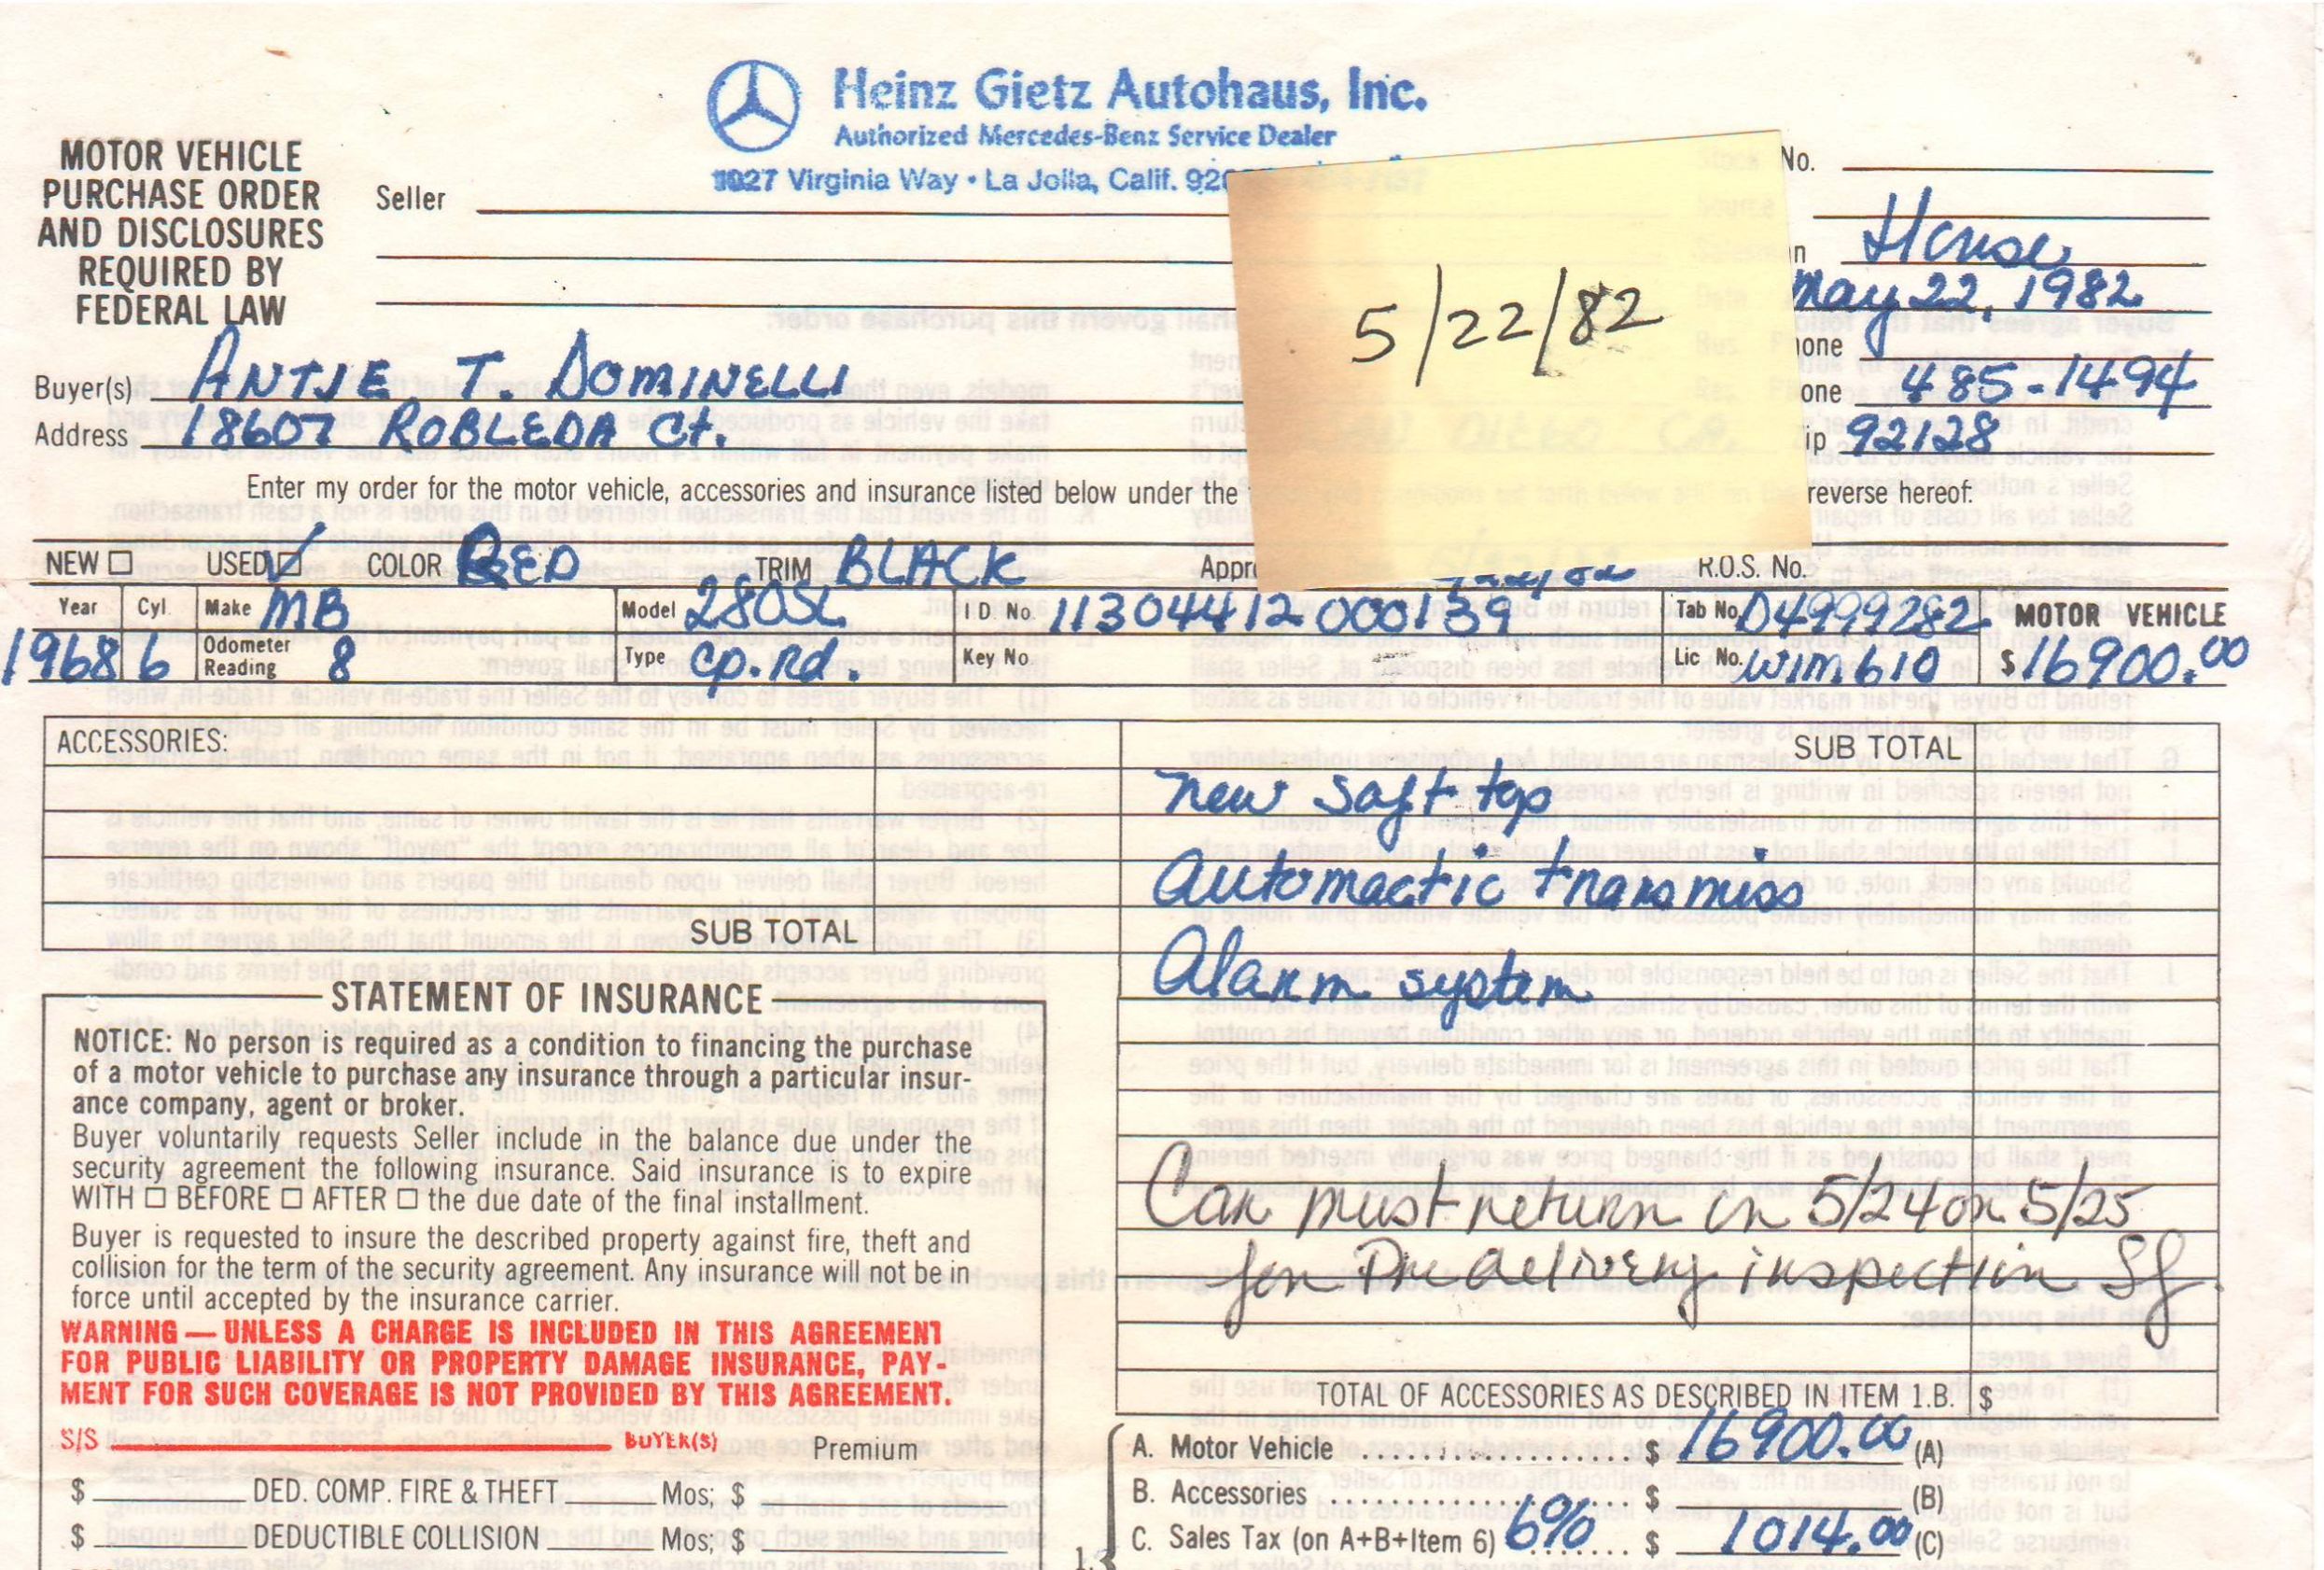 Heinz Gietz Autohaus, Inc.
Authorized Mercedes-Benz Service Dealer
1027 Virginia Way • La Jolla, Calif. 920
MOTOR VEHICLE
PURCHASE ORDER
AND DISCLOSURES
REQUIRED BY
FEDERAL LAW
Seller
No.
5/22/82
May 22, 1982
one
Buyer(s) ANTJE T. DOMINELLI
one 485-1494
Address 18607 ROBLEDA Ct.
ip 92128
Enter my order for the motor vehicle, accessories and insurance listed below under the reverse hereof:
NEW ☐ USED ☑ COLOR RED TRIM BLACK Appr R.O.S. No.
Year Cyl. Make MB Model 280SL I D. No. 11304412000159 Tab No. D4999282 MOTOR VEHICLE
1968 6 Odometer Reading 8 Type cp.rd. Key No Lic No. WIM610 $16900.00
ACCESSORIES:
SUB TOTAL
SUB TOTAL
new soft top
Automactic transmiss
Alarm system
Car must return in 5/24 or 5/25
for Predelivery inspection
TOTAL OF ACCESSORIES AS DESCRIBED IN ITEM I.B. $
STATEMENT OF INSURANCE
NOTICE: No person is required as a condition to financing the purchase
of a motor vehicle to purchase any insurance through a particular insur-
ance company, agent or broker.
Buyer voluntarily requests Seller include in the balance due under the
security agreement the following insurance. Said insurance is to expire
WITH ☐ BEFORE ☐ AFTER ☐ the due date of the final installment.
Buyer is requested to insure the described property against fire, theft and
collision for the term of the security agreement. Any insurance will not be in
force until accepted by the insurance carrier.
WARNING — UNLESS A CHARGE IS INCLUDED IN THIS AGREEMENT
FOR PUBLIC LIABILITY OR PROPERTY DAMAGE INSURANCE, PAY-
MENT FOR SUCH COVERAGE IS NOT PROVIDED BY THIS AGREEMENT.
S/S BUYER(S) Premium
$ DED. COMP. FIRE & THEFT Mos; $
$ DEDUCTIBLE COLLISION Mos; $
A. Motor Vehicle $ 16900.00 (A)
B. Accessories $ (B)
C. Sales Tax (on A+B+Item 6) 6% $ 1014.00 (C)
1.